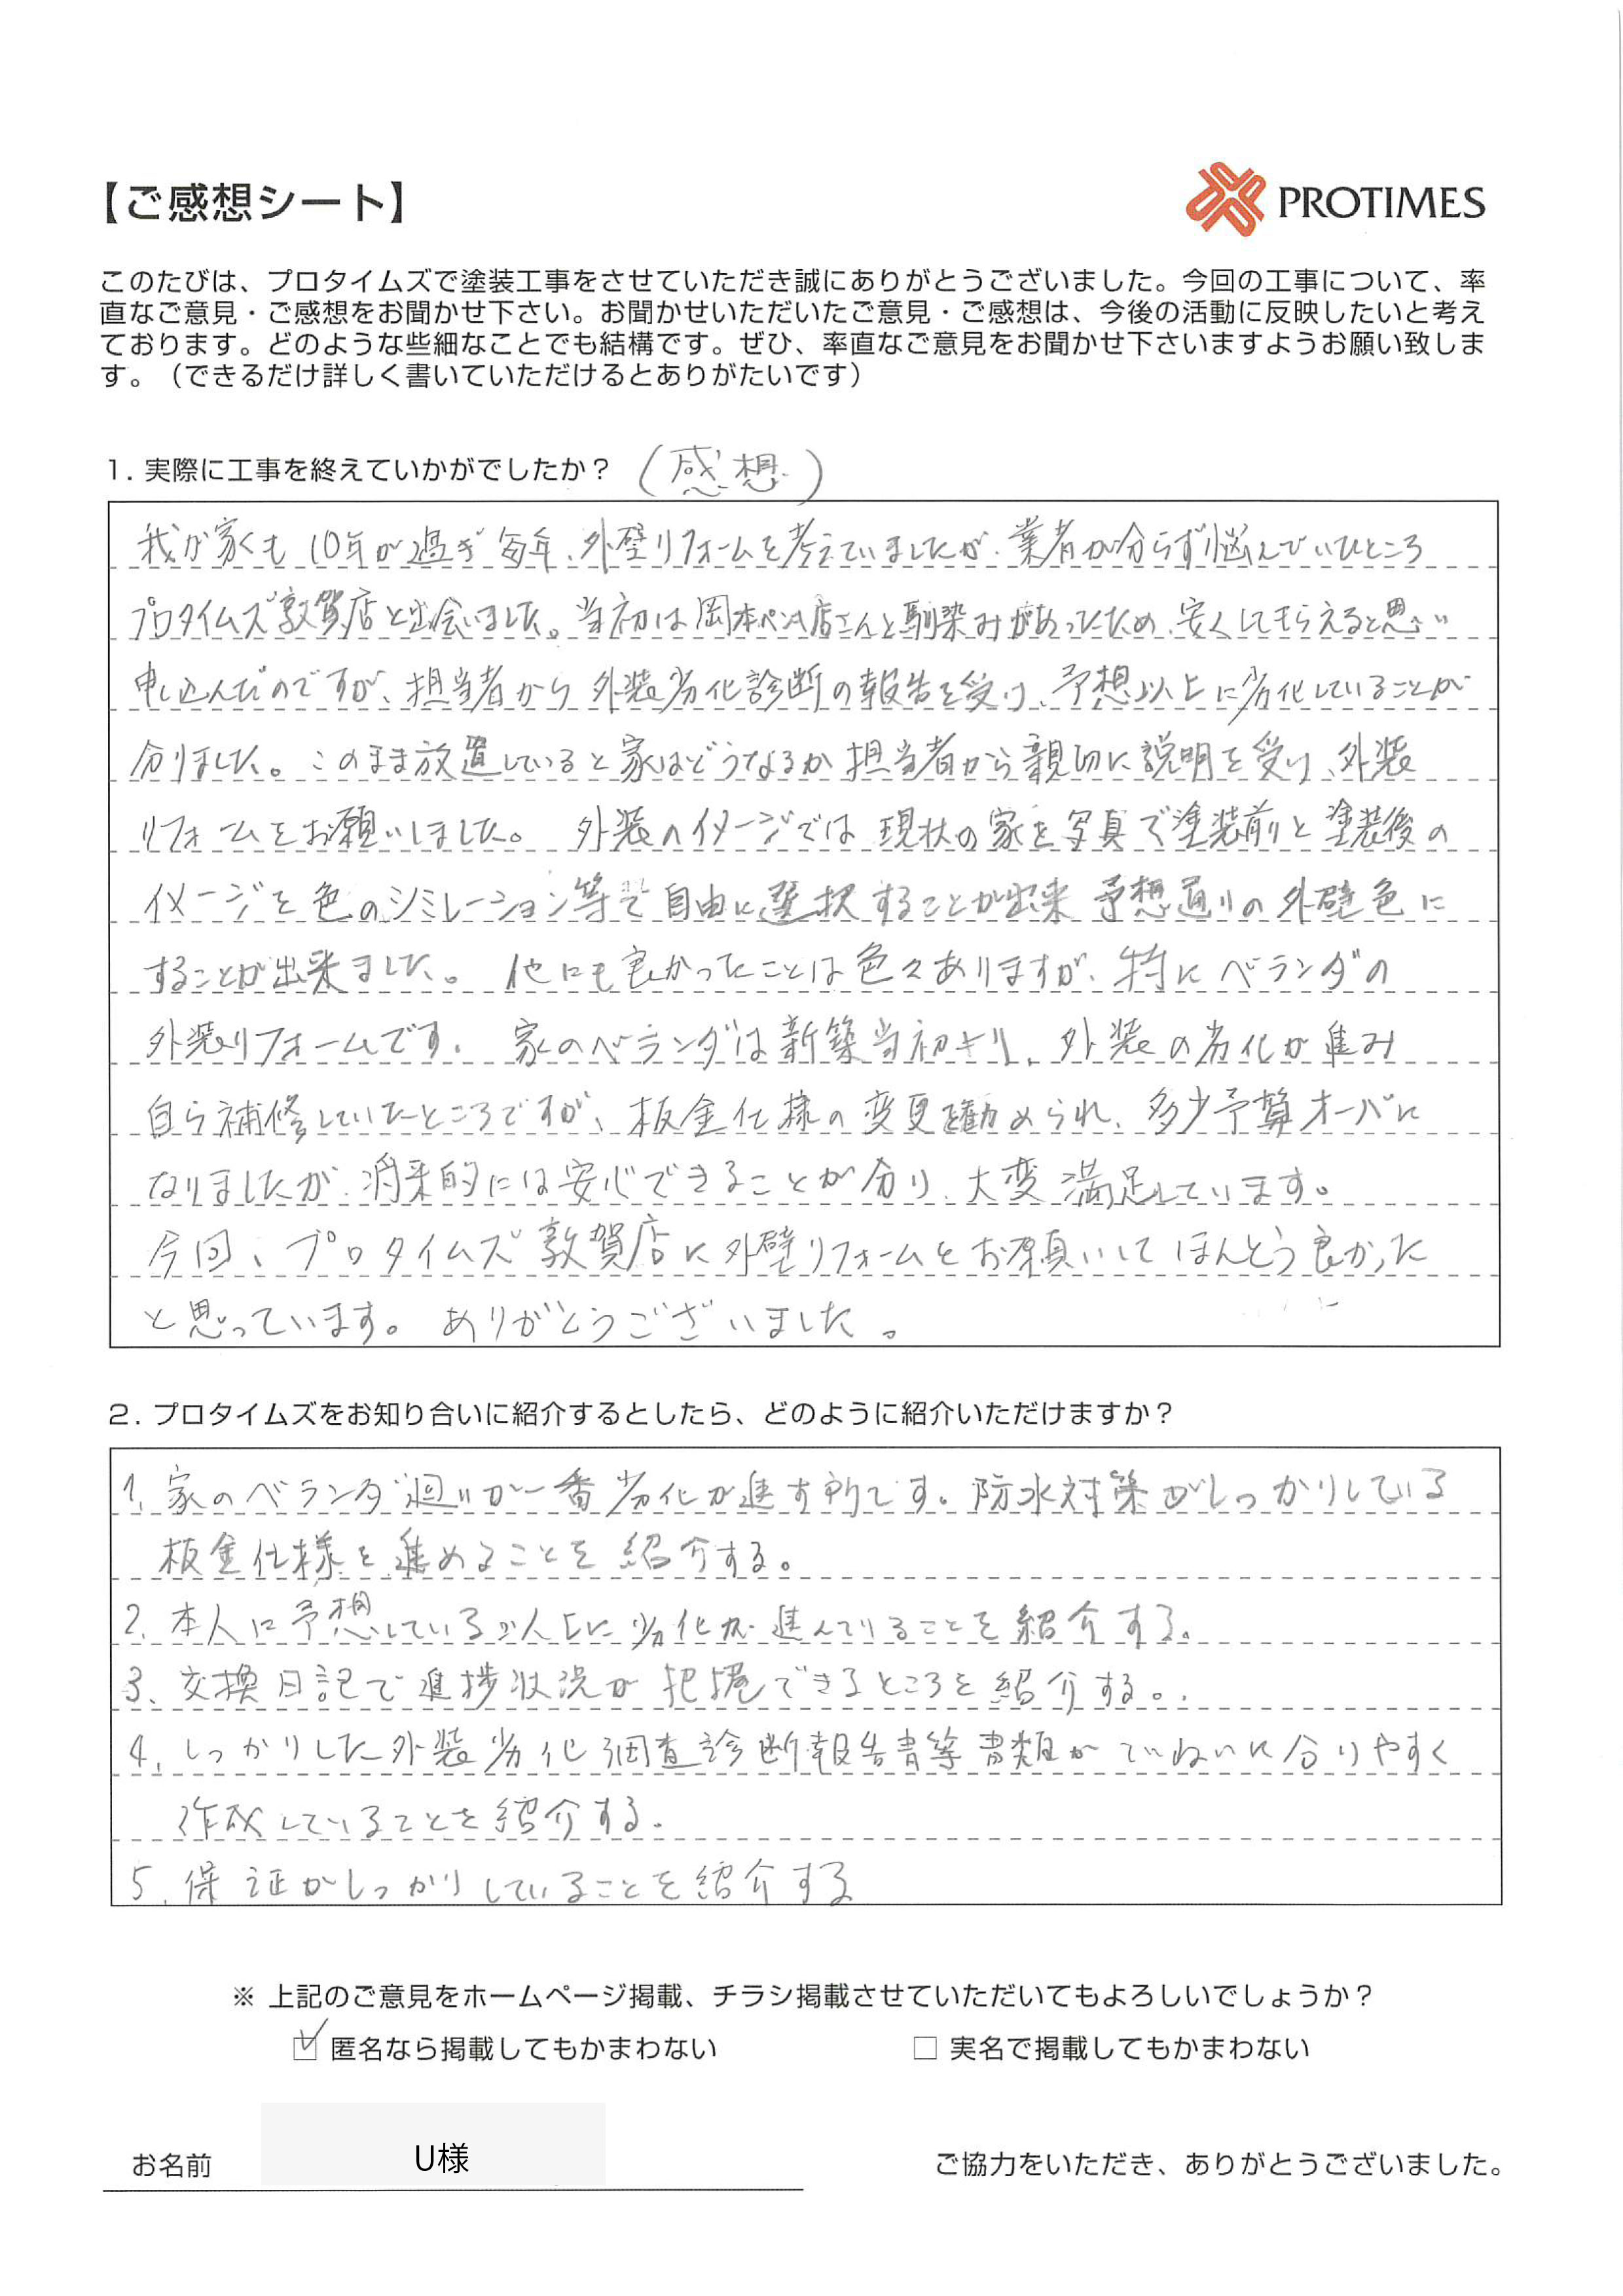 【ご感想シート】
PROTIMES
このたびは、プロタイムズで塗装工事をさせていただき誠にありがとうございました。今回の工事について、率
直なご意見・ご感想をお聞かせ下さい。お聞かせいただいたご意見・ご感想は、今後の活動に反映したいと考え
ております。どのような些細なことでも結構です。ぜひ、率直なご意見をお聞かせ下さいますようお願い致しま
す。（できるだけ詳しく書いていただけるとありがたいです）
1. 実際に工事を終えていかがでしたか？ （感想）
我が家くも 10年が過ぎ 毎年、外壁リフォームを考えていましたが、業者が分らず悩んでいたところ
プロタイムズ敦賀店と出会いました。当初は岡本ペンキ店さんと馴染みがあったため、安くしてもらえると思い
申し込んだのですが、担当者から 外装劣化診断の報告を受け、予想以上に劣化していることが
分りました。このまま放置していると家はどうなるか担当者から親切に説明を受け、外装
リフォームをお願いしました。 外装のイメージでは 現状の家を写真で塗装前と塗装後の
イメージを色のシミレーション等で自由に選択することが出来 予想通りの外壁色に
することが出来ました。 他にも良かったことは色々ありますが、特にベランダの
外装リフォームです。 家のベランダは新築当初より、外装の劣化が進み
自ら補修していたところですが、板金仕様の変更を勧められ、多少予算オーバに
なりましたが、将来的には安心できることが分り、大変満足しています。
今回、プロタイムズ敦賀店に外壁リフォームをお願いしてほんとう良かった
と思っています。 ありがとうございました。
2. プロタイムズをお知り合いに紹介するとしたら、どのように紹介いただけますか？
1. 家のベランダ廻りが一番劣化が進む所です。防水対策がしっかりしている
板金仕様を進めることを紹介する。
2. 本人に予想している以上に劣化が進んでいることを紹介する。
3、交換日記で進捗状況が把握できるところを紹介する。
4. しっかりした外装劣化調査診断報告書等書類がていねいに分りやすく
作成していることを紹介する。
5. 保証がしっかりしていることを紹介する
※ 上記のご意見をホームページ掲載、チラシ掲載させていただいてもよろしいでしょうか？
☑ 匿名なら掲載してもかまわない □ 実名で掲載してもかまわない
お名前 U様 ご協力をいただき、ありがとうございました。